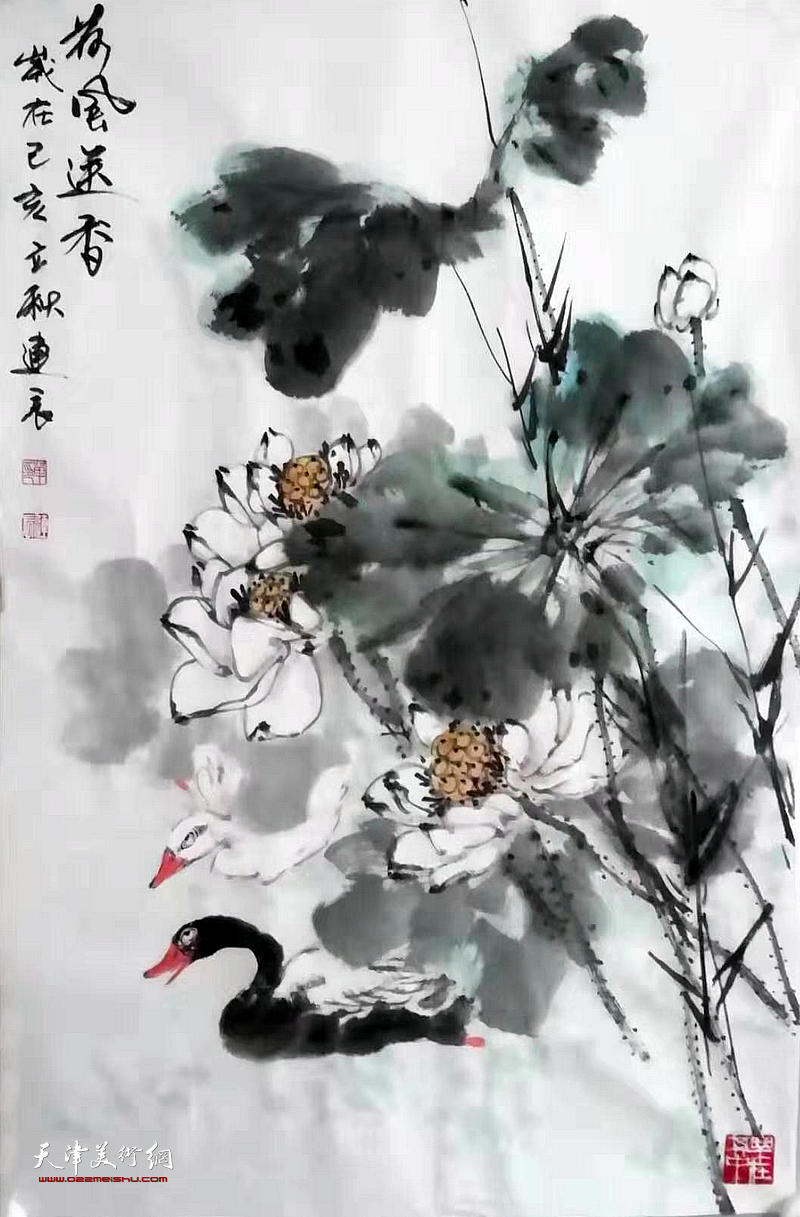 荷风送香
岁在己亥立秋连辰
天津美術網
www.022meishu.com